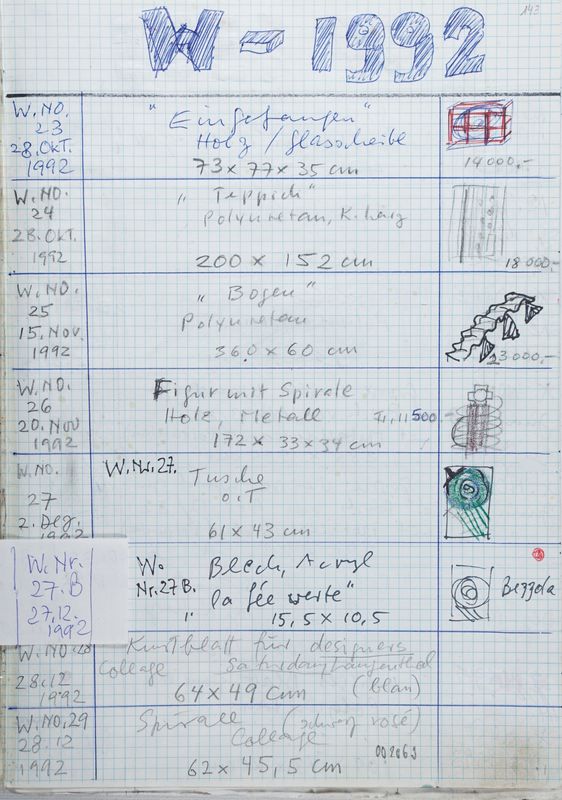 143
W-1992
W.NO.
23
28.OKT.
1992
"Eingefangen"
Holz / Glasscheibe
73 x 77 x 35 cm
14000,-
W.NO.
24
28.OKT.
1992
"Teppich"
Polyuretan, K.harz
200 x 152 cm
18000,-
W.NO.
25
15.Nov.
1992
"Bogen"
Polyuretan
360 x 60 cm
23000,-
W.NO.
26
20.NOV
1992
Figur mit Spirale
Holz, Metall
172 x 33 x 34 cm
Fr. 11500.-
W.NO.
27
2.Dez.
1992
W.Nr.27.
Tusche
o.T
61 x 43 cm
W.Nr.
27.B
27.12.
1992
W.
Nr.27B.
Blech, Acryl
"la fée werte"
15,5 x 10,5
Bezzola
W.NO.28
28.12
1992
Kunstblatt für designers
Collage Saturday
64 x 49 cm (blau)
W.NO.29
28.12
1992
Spirale (schwarz rosé)
Collage
002063
62 x 45,5 cm